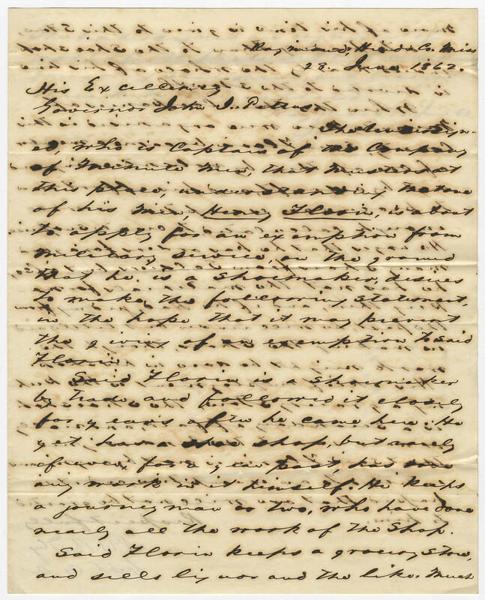 Raymond, Hinds Co. Miss
28. June 1862.
His Excellency
Governor John J. Pettus
The undersign-
ed, who is Captain of the Company
of Minute Men, that musters at
this place, understanding that one
of his men, Henry Florin, is about
to apply for an exemption from
military service, on the ground
that he is a shoemaker, desires
to make the following statement,
in the hope that it may prevent
the giving of an exemption to said
Florin.
Said Florin is a shoemaker
by trade and followed it closely
for years after he came here. He
yet has a shoe shop, but rarely
if ever, for years past, has done
any work in it himself. He keeps
a journeyman or two, who have done
nearly all the work of the shop.
Said Florin keeps a grocery store,
and sells liquor and the like. Much